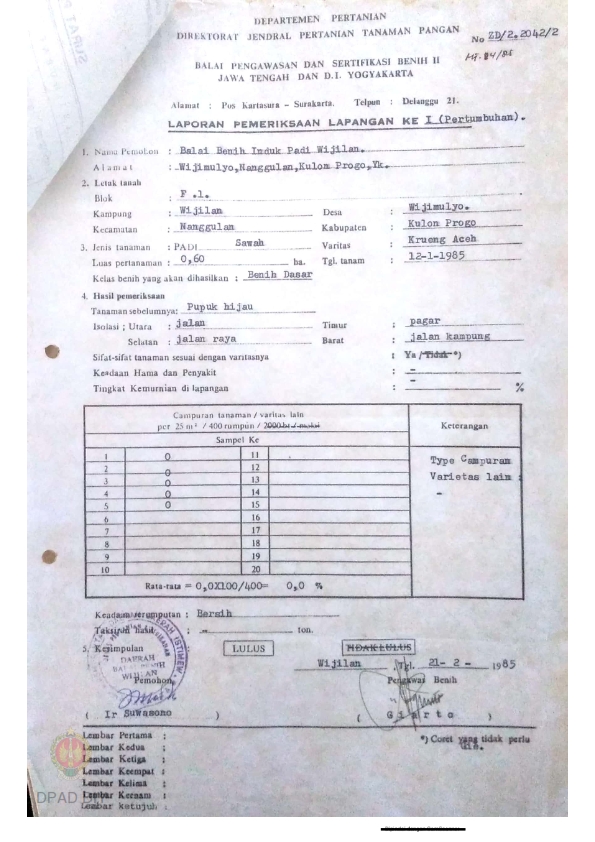 DEPARTEMEN PERTANIAN
DIREKTORAT JENDRAL PERTANIAN TANAMAN PANGAN
No ZD/2.2042/2
BALAI PENGAWASAN DAN SERTIFIKASI BENIH II
JAWA TENGAH DAN D.I. YOGYAKARTA
Alamat : Pos Kartasura – Surakarta. Telpun : Delanggu 21.
LAPORAN PEMERIKSAAN LAPANGAN KE I (Pertumbuhan).
1. Nama Pemohon : Balai Benih Induk Padi Wijilan.
Alamat : Wijimulyo,Nanggulan,Kulom Progo,Yk.
2. Letak tanah
Blok : F .1. :
Kampung : Wijilan Desa : Wijimulyo.
Kecamatan : Nanggulan Kabupaten : Kulon Progo
3. Jenis tanaman : PADI Sawah Varitas : Krueng Aceh
Luas pertanaman : 0,60 ha. Tgl. tanam : 12-1-1985
Kelas benih yang akan dihasilkan : Benih Dasar
4. Hasil pemeriksaan
Tanaman sebelumnya: Pupuk hijau
Isolasi ; Utara : jalan Timur : pagar
Selatan : jalan raya Barat : jalan kampung
Sifat-sifat tanaman sesuai dengan varitasnya : Ya /Tidak *)
Keadaan Hama dan Penyakit : –
Tingkat Kemurnian di lapangan : – %
Campuran tanaman / varitas lain
per 25 m² / 400 rumpun /
Keterangan
Sampel Ke
1 0 11
2 0 12
3 0 13
4 0 14
5 0 15
6 16
7 17
8 18
9 19
10 20
Type Campuran
Varietas lain :
–
Rata-rata = 0,0X100/400= 0,0 %
Keadaan serumputan : Bersih
Taksiran hasil : – ton.
5. Kesimpulan LULUS TIDAK LULUS
Wijilan, Tgl. 21- 2 - 1985
DAERAH
Pemohon Pengawas Benih
( Ir Suwarono ) ( Giarto )
Lembar Pertama :
Lembar Kedua :
Lembar Ketiga :
Lembar Keempat :
Lembar Kelima :
Lembar Keenam :
Lembar ketujuh :
*) Coret yang tidak perlu
DPAD